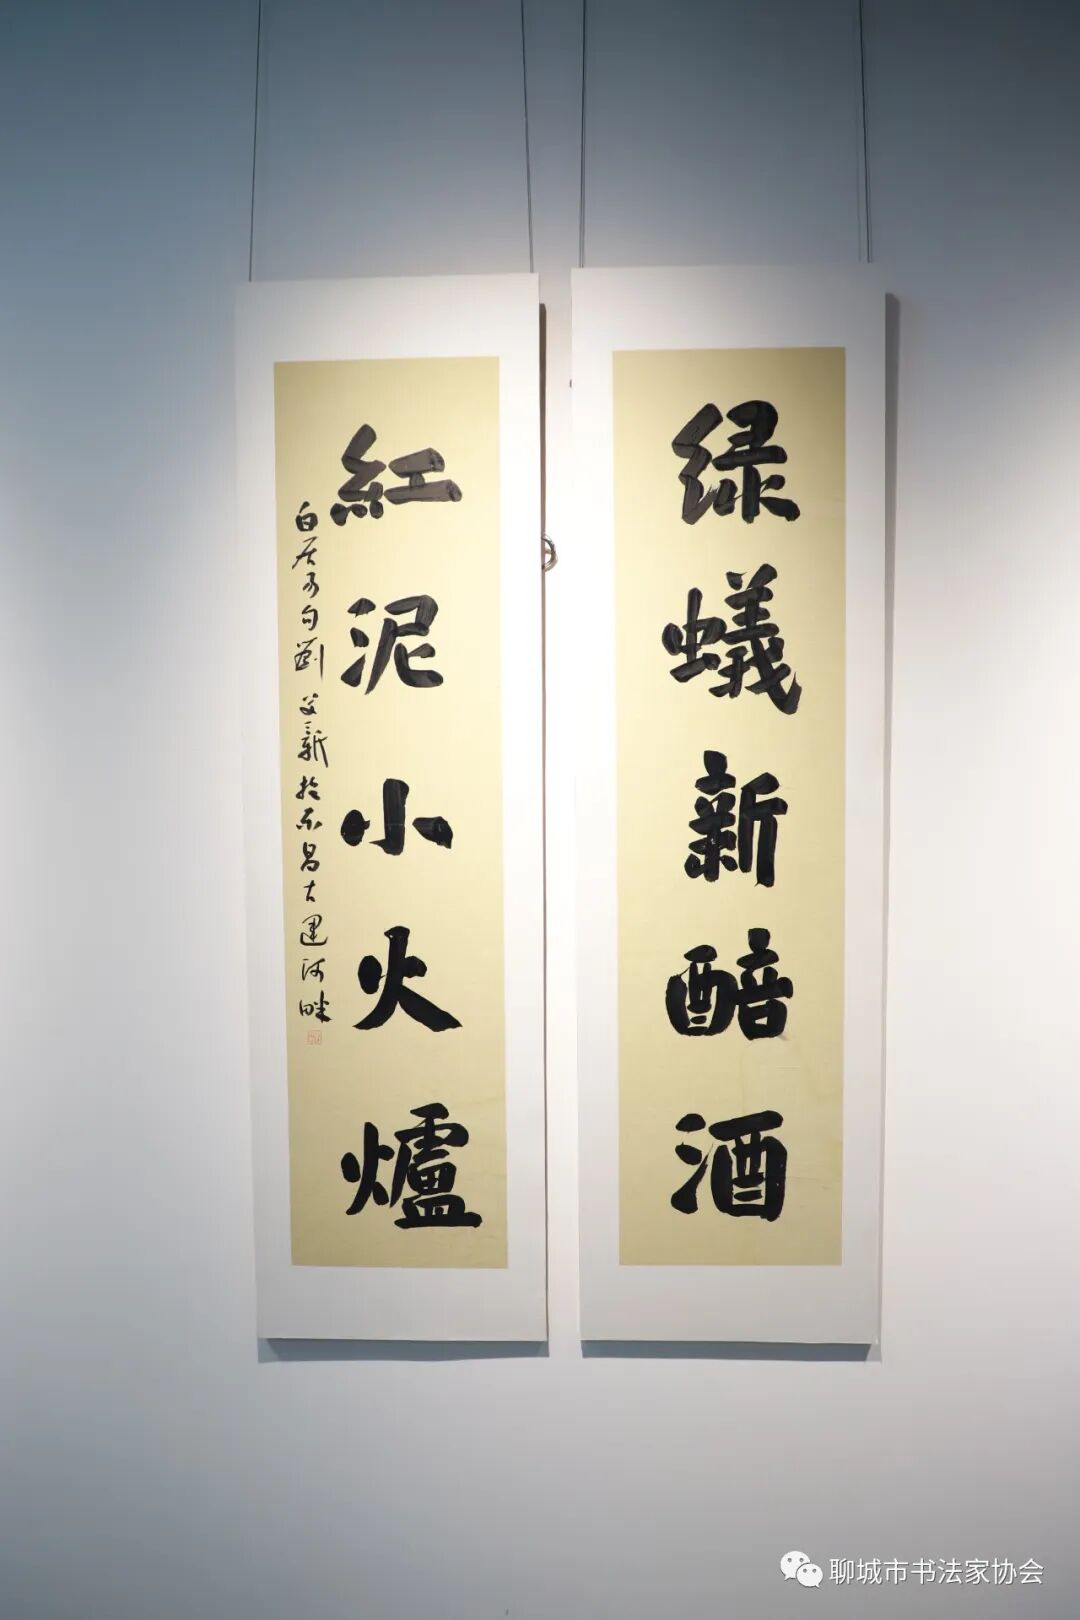 绿蟻新醅酒
紅泥小火爐
白居易句劉
於東昌古運河畔
聊城市书法家协会